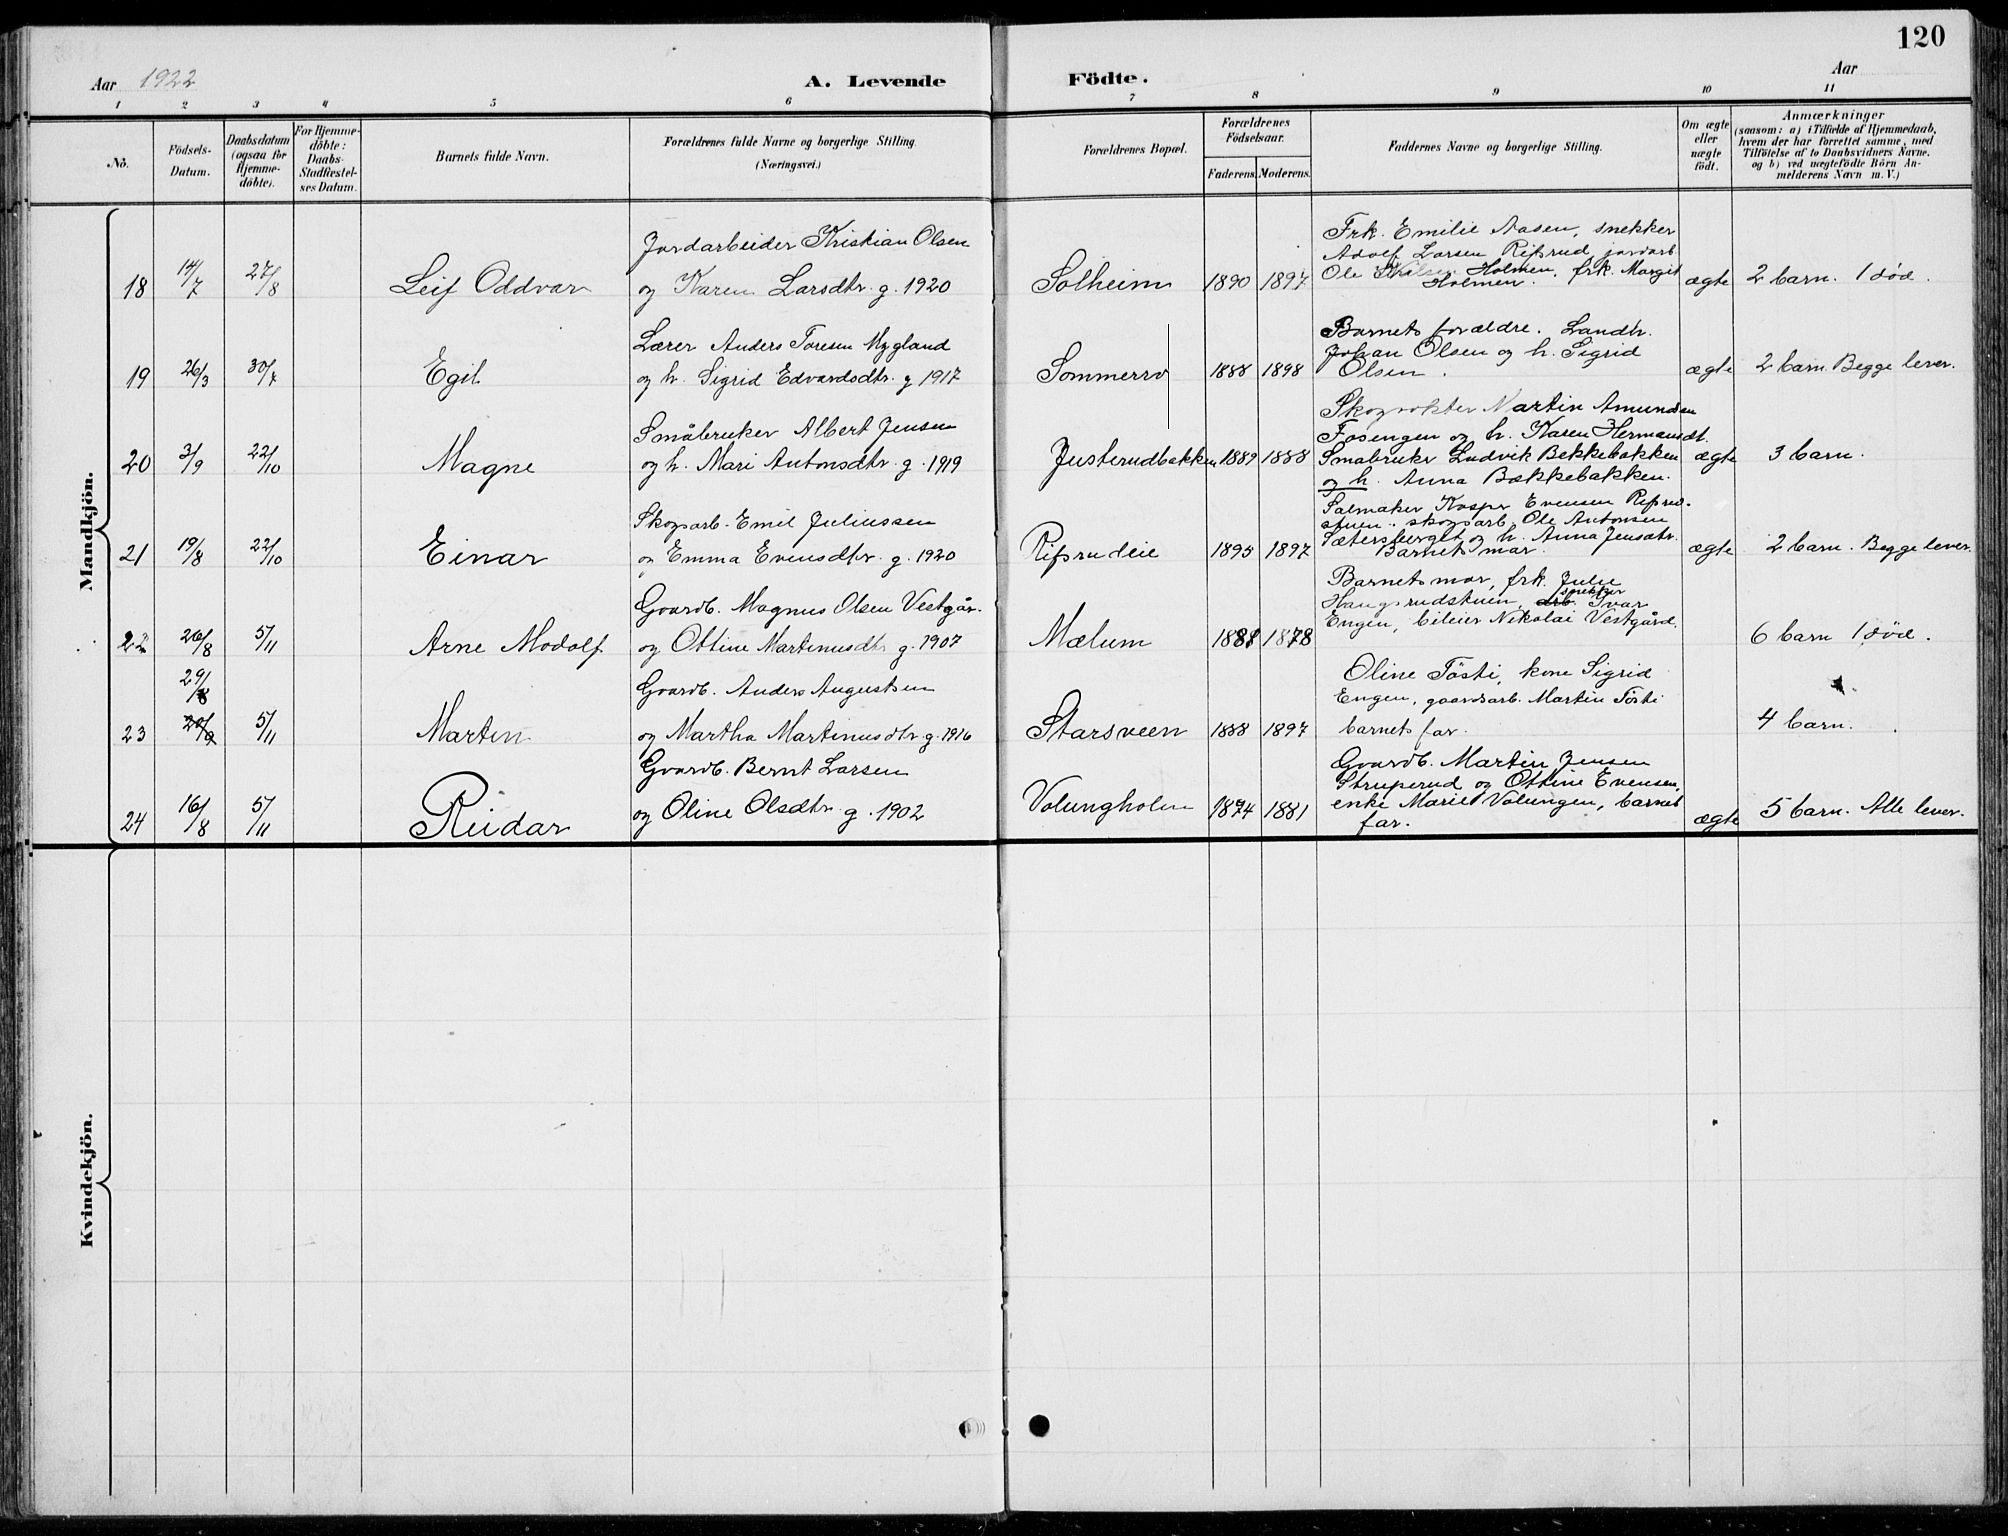 120
Aar 1922 A. Levende Födte. Aar
1 2 3 4 5 6 7 8 9 10 11
No.
Födsels-Datum.
Daabsdatum (ogsaa for Hjemme-döbte).
For Hjemme-döbte: Daabs-Stadfæstel-ses Datum.
Barnets fulde Navn.
Forældrenes fulde Navne og borgerlige Stilling. (Næringsvei.)
Forældrenes Bopæl.
Forældrenes Födselsaar.
Faderens. Moderens.
Faddernes Navne og borgerlige Stilling.
Om ægte eller uægte födt.
Anmærkninger
(saasom: a) i Tilfælde af Hjemmedaab,
hvem der har forrettet samme, med
Tilföielse af to Daabsvidners Navne.
og b) ved uægtefödte Börn An-
melderens Navn m. V.)
Mandkjön.
18 14/7 27/8 Leif Oddvar
Jordarbeider Kristian Olsen
og Karen Larsdtr. g. 1920
Solheim 1890 1897
Frk. Emilie Aasen, snekker
Adolf Larsen Rifsrud, jordarb
Ole Holmen, frk. Margit
Holmen.
ægte 2 barn. 1 død.
19 26/3 30/7 Egil
Lærer Anders Toresen Mygland
og h. Sigrid Edvardsdtr. g 1917
Sommerro 1888 1898
Barnets forældre. Landh.
Johan Olsen og h. Sigrid
Olsen.
ægte 2 barn. Begge lever.
20 3/9 22/10 Magne
Småbruker Albert Jensen
og h. Mari Antonsdtr. g. 1919
Justerudbakken 1889 1888
Skogvokter Martin Amundsen
Fosengen og h. Karen Hermansdt.
Småbruker Ludvik Bekkebakken
og h. Anna Bækkebakken.
ægte 3 barn.
21 19/8 22/10 Einar
Skogsarb. Emil Juliussen
og Emma Evensdtr. g. 1920
Rifsrudeie 1895 1897
Salmaker Kasper Evensen Rifsrud-
stuen, skogsarb. Ole Antonsen
Sætersberget og h. Anna Jensdtr.
Barnets mor.
ægte 2 barn. Begge lever.
22 26/8 5/11 Arne Modolf
Gaardb. Magnus Olsen Vestgår.
og Ottine Martinusdtr g. 1907
Mælum 1881 1878
Barnets mor, frk. Julie
Haugsrudstuen, snekker Ivar
Engen, bileier Nikolai Vestgård.
6 barn 1 død.
23 29/8 20/9 5/11 Martin
Gaardb. Anders Augustsen
og Martha Martinusdtr g. 1916
Starsveen 1888 1897
Oline Tösti, kone Sigrid
Engen, gaardsarb. Martin Tösti
barnets far.
4 barn.
24 16/8 5/11 Reidar
Gaardb. Bernt Larsen
og Oline Olsdtr g. 1902
Volungholm 1874 1881
Gaardb. Martin Jensen
Struperud og Ottine Evensen,
enke Marie Volungen, barnets
far.
ægte 5 barn. Alle lever.
Kvindekjön.